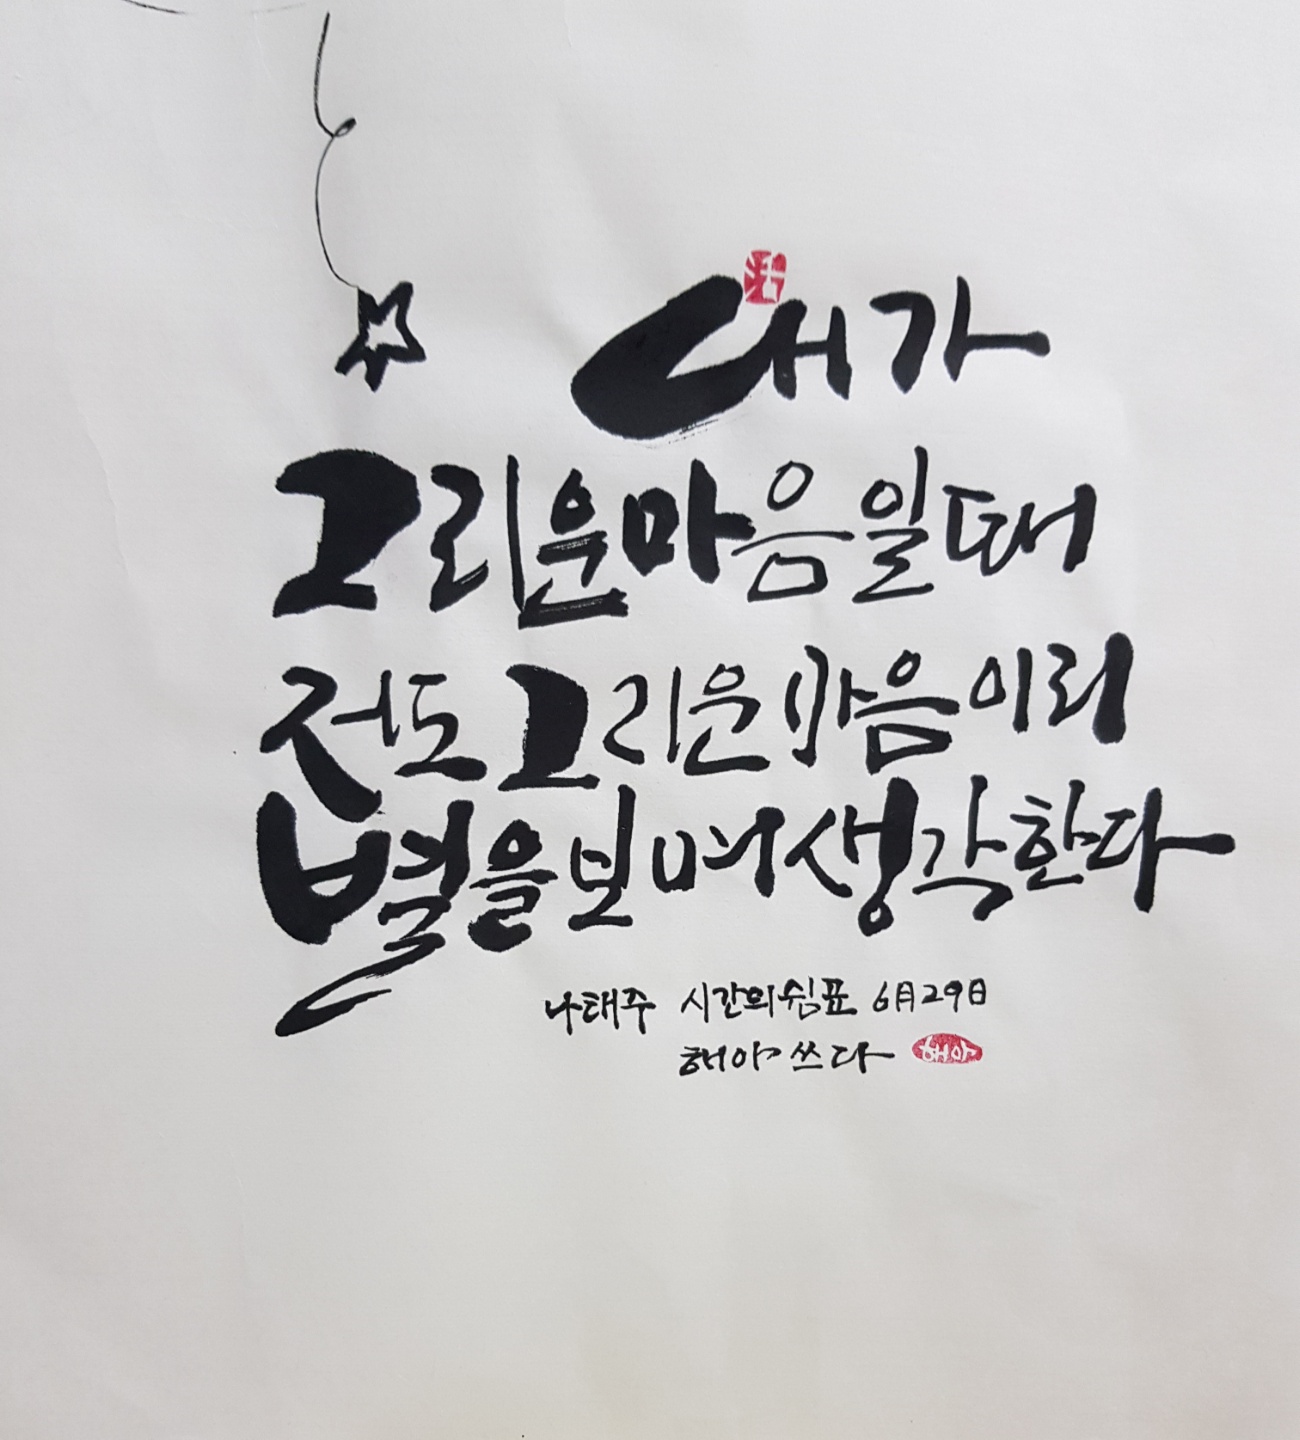 내가
그리운 마음일 때
저도 그리운 마음이리
별을 보며 생각한다
나태주 시간의 쉼표 6月29日
해야 쓰다 해야